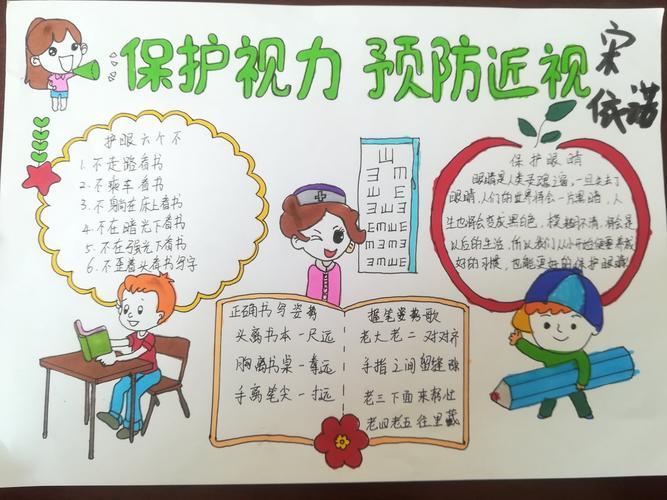 保护视力 预防近视
宋
依诺
护眼六个不
1. 不走路看书
2. 不乘车看书
3. 不躺在床上看书
4. 不在暗光下看书
5. 不在强光下看书
6. 不歪着头看书写字
保护眼睛
眼睛是人类灵魂之窗,一旦失去了
眼睛,人们的世界将会一片黑暗,人
生也将会变成黑色,模糊不清,将会是
以后的生活,所以我们从小开始便要养成
好的习惯,也能更好的保护眼睛
山
E
M
E
E
M
E
正确书写姿势
头离书本一尺远
胸离书桌一拳远
手离笔尖一寸远
握笔姿势歌
老大老二对对齐
手指之间留缝隙
老三下面来帮忙
老四老五往里藏